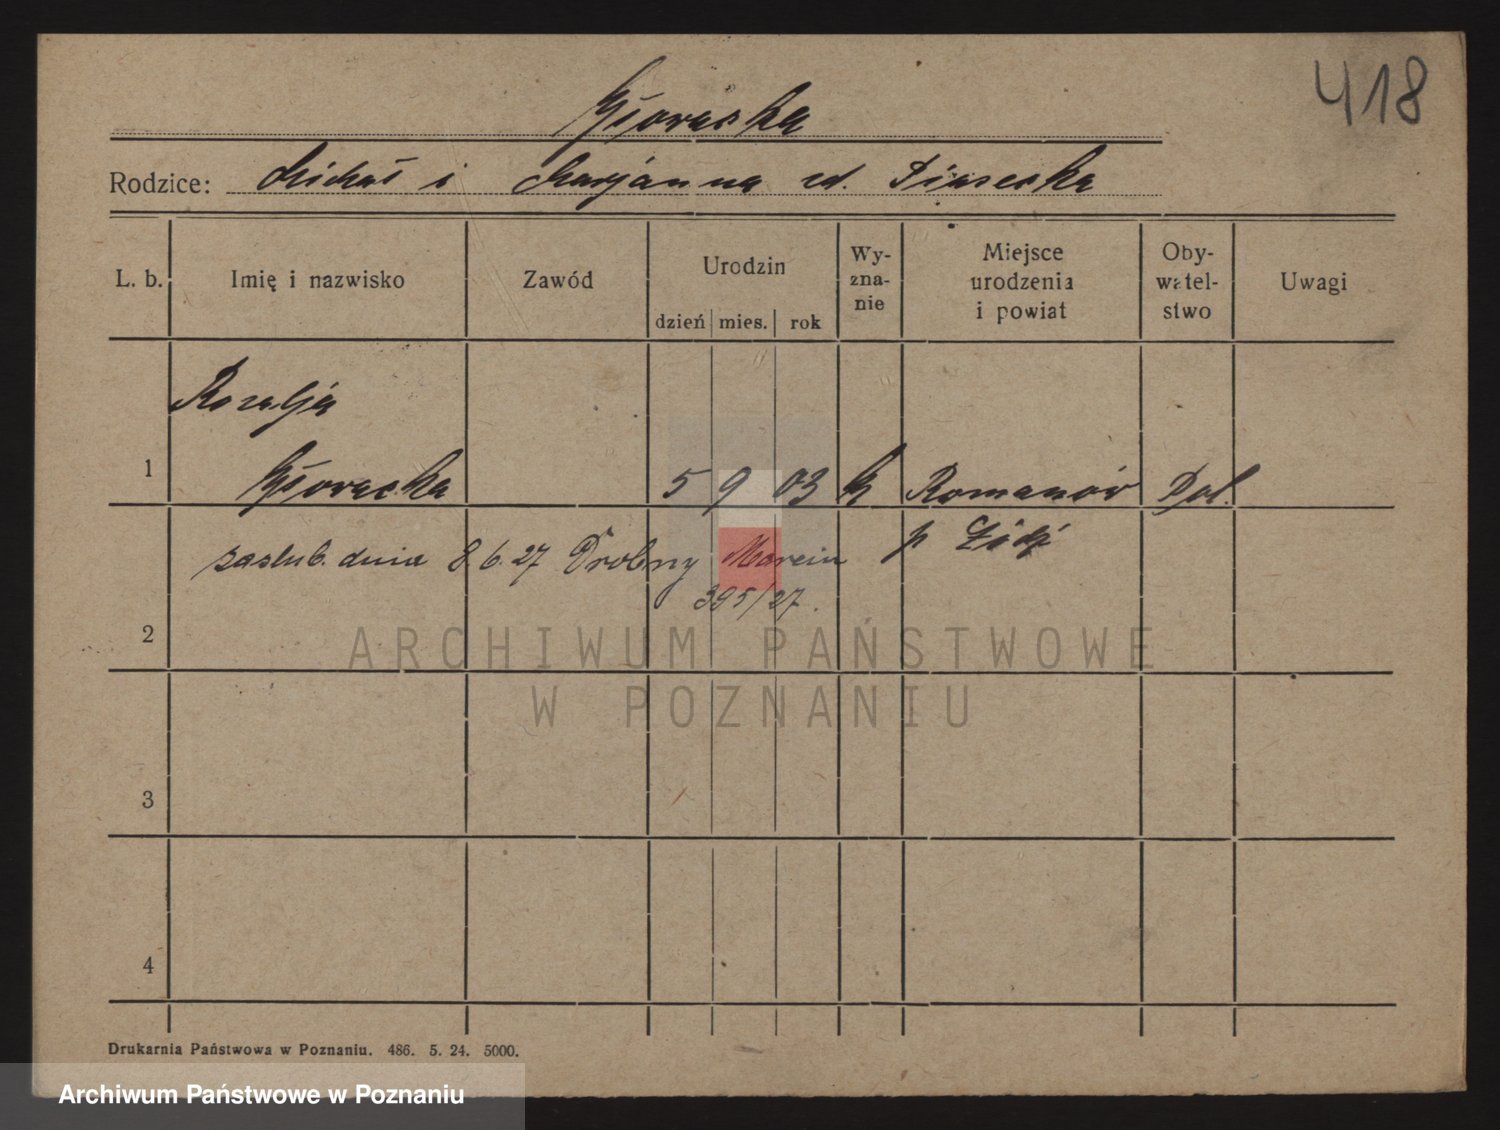 418
Rodzice: Michał i Marjanna zd. Piasecka
L. b. Imię i nazwisko Zawód Urodzin dzień mies. rok Wyznanie Miejsce urodzenia i powiat Obywatelstwo Uwagi
Rozalja
1 5 9 03 k Romanów Pol.
p Łódź
zaślub. dnia 8.6.27 Drobny Marcin
395/27.
2
ARCHIWUM PAŃSTWOWE
W POZNANIU
3
4
Drukarnia Państwowa w Poznaniu. 486. 5. 24. 5000.
Archiwum Państwowe w Poznaniu